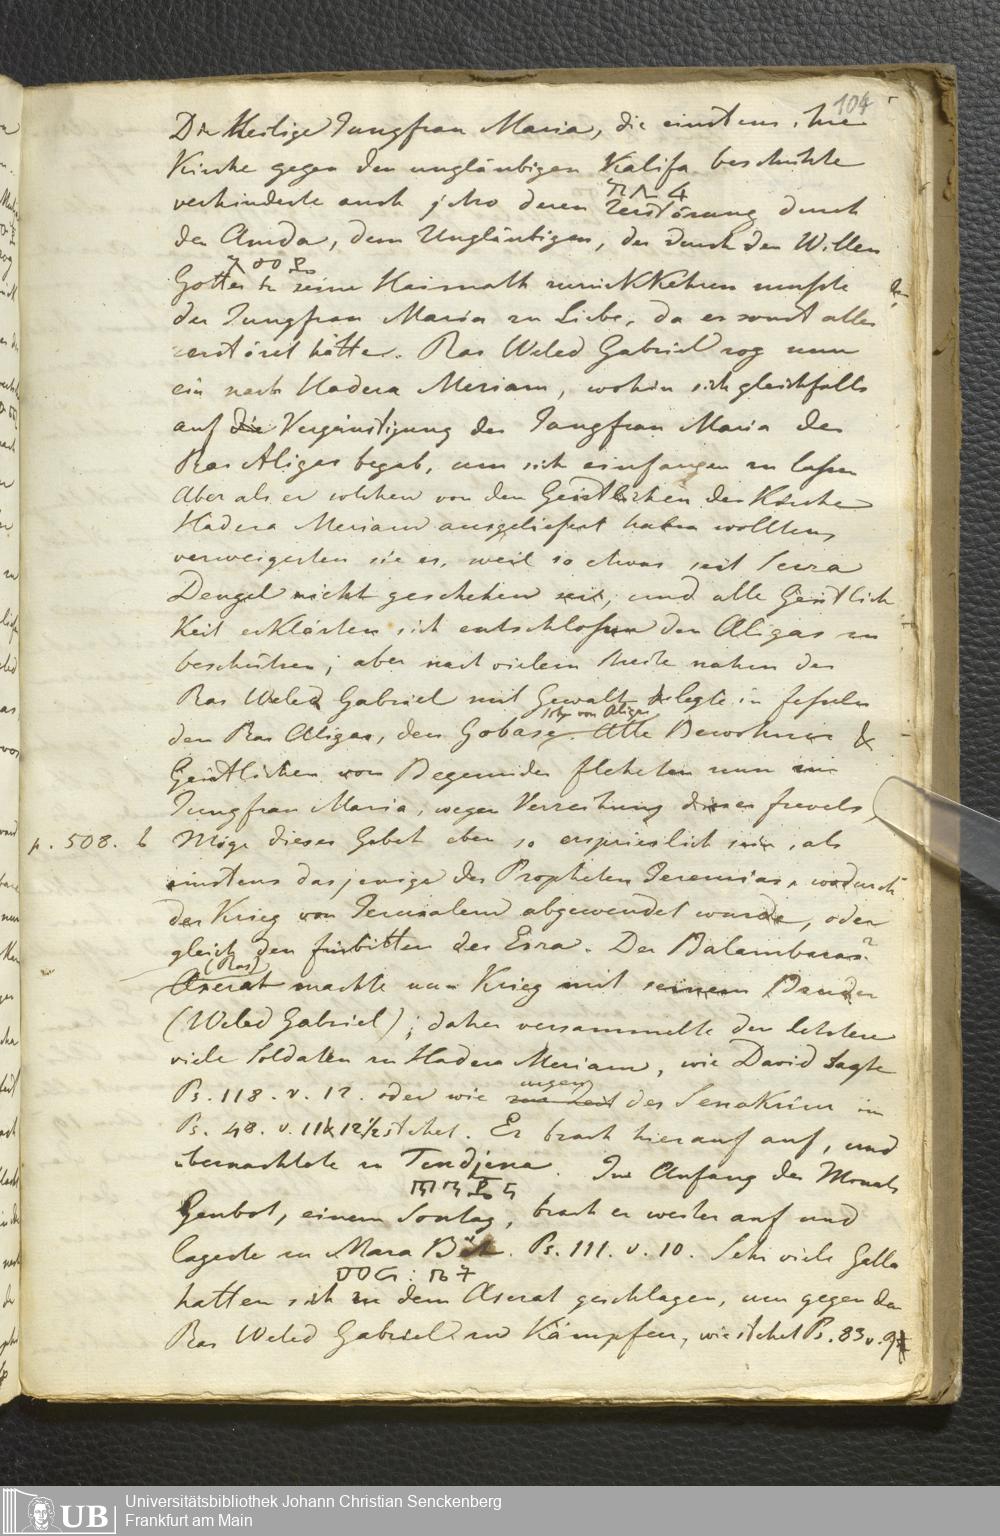 104
Die Heilige Jungfrau Maria, die einstens ihre
Kirche gegen den ungläubigen Kalifa beschützte
verhinderte auch jetzo deren Zerstörung durch
den Amda, dem Ungläubigen, der durch den Willen
Gottes in seine Heimath zurückkehren musste
der Jungfrau Maria zu Liebe, da er sonst alles
zerstöret hätte. Ras Weled Gabriel zog nun
ein nach Hadera Meriam, wohin sich gleichfalls
auf die Vergünstigung der Jungfrau Maria der
Ras Aligas begab, um sich einfangen zu lassen
Aber als er solchen von den Geistlichen der Kirche
Hadera Meriam ausgeliefert haben wollten,
verweigerten sie es, weil so etwas seit Serza
Dengel nicht geschehen sei, und alle Geistlich
Keit erklärten sich entschlossen den Aligas zu
beschützen; aber nach vielem Streite nahm der
Ras Weled Gabriel mit Gewalt & legte in Fesseln
den Ras Aligas, den Gobase. Alle Bewohner &
Sohn von Aligas
Geistlichen von Begemider flehten nun
Jungfrau Maria, wegen Verzeihung dieses Frevels,
p. 508. b Möge dieses Gebet eben so erspriesslich sein, als
einstens dasjenige des Propheten Jeremias, wodurch
der Krieg von Jerusalem abgewendet wurde, oder
gleich den Fürbitten des Esra. Der Balambaras?
(Ras)
Aserat machte nun Krieg mit seinem Bruder
(Weled Gabriel); daher versammelte der letztere
viele Soldaten zu Hadera Meriam, wie David sagte
Ps. 118. v. 12. oder wie wegen des Senakrim im
Ps. 48. v. 11 & 12 1/2 stehet. Er brach hierauf auf, und
übernachtete zu Tendjena. Im Anfang des Monats
Genbot, einem Sontag, brach er weiter auf und
lagerte zu Mara Bêt. Ps. 111. v. 10. Sehr viele Galla
hatten sich zu dem Aserat geschlagen, um gegen den
Ras Weled Gabriel zu Kämpfen, wie stehet Ps. 83 v. 9
Universitätsbibliothek Johann Christian Senckenberg
Frankfurt am Main
UB